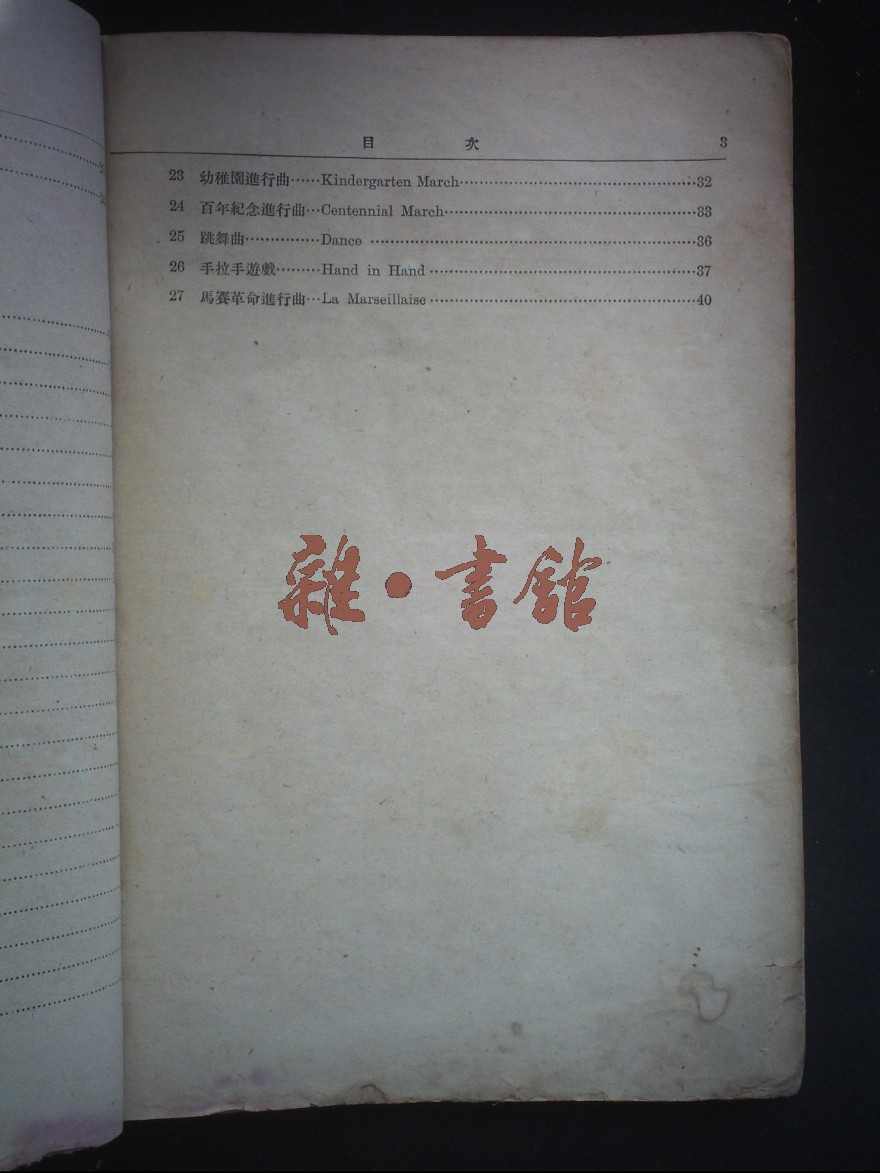 目 次 3
23 幼稚園進行曲……Kindergarten March……32
24 百年紀念進行曲…Centennial March……33
25 跳舞曲……Dance……36
26 手拉手遊戲………Hand in Hand……37
27 馬賽革命進行曲…La Marseillaise……40
雜·書館